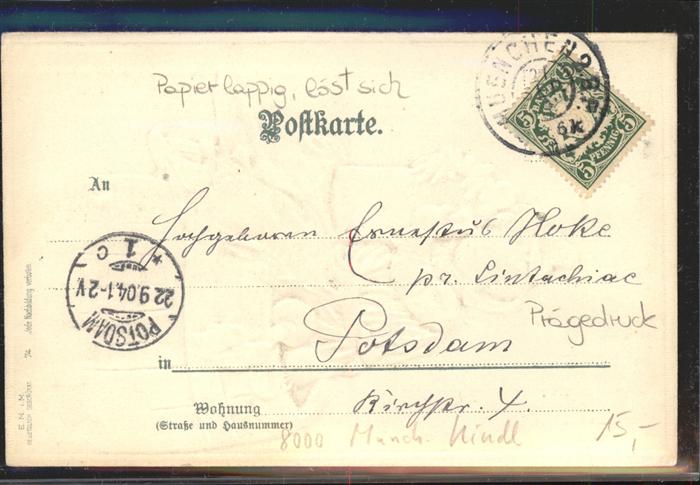 Papier lappig, löst sich
Postkarte.
MUENCHEN 2
BAYERN
5
5
5
PFENNIG
An
Hochgeboren Ernestus Hoke
pr. Lintachiac
Prägedruck
Potsdam
in
Wohnung
(Straße und Hausnummer)
Kirchstr. 4.
8000 Münch. Kindl
15,-
POTSDAM
22.9.04.1-2V.
* 1 C
Jede Nachbildung verboten
74
E.N.i.M.